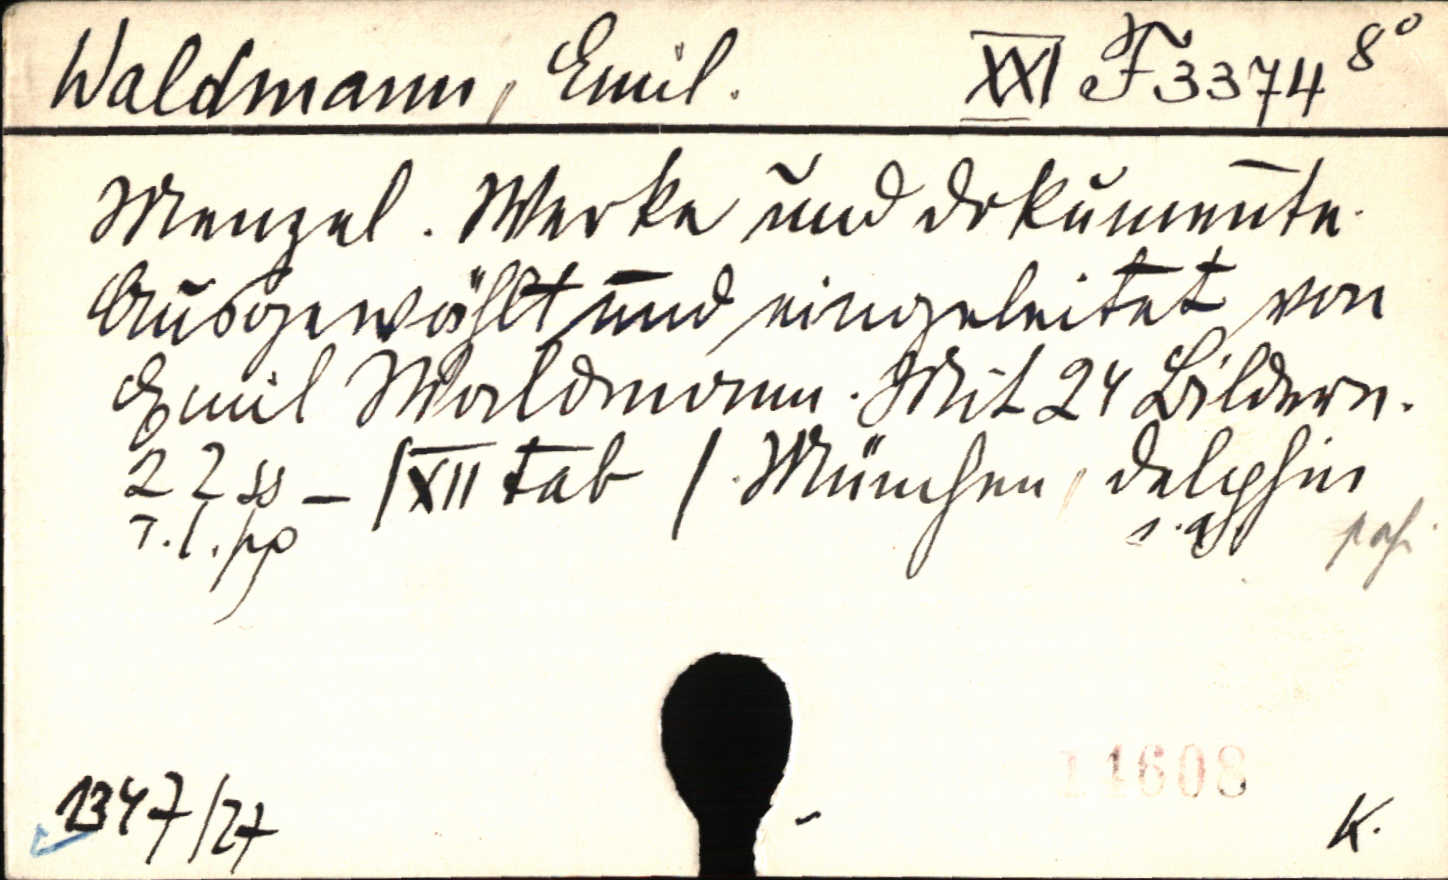 Waldmann, Emil. XXI F 3374 8°
Menzel. Werke und Dokumente.
Ausgewählt und eingeleitet von
Emil Waldmann. Mit 24 Bildern.
22 ss – /XII tab /. München, Delphin
s. a.
1347/27
14608
K.